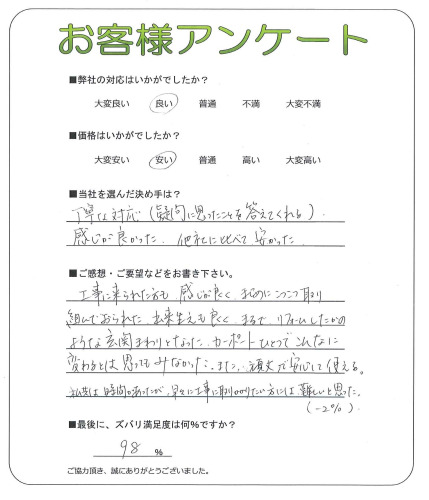 お客様アンケート
■弊社の対応はいかがでしたか？
大変良い 良い 普通 不満 大変不満
■価格はいかがでしたか？
大変安い 安い 普通 高い 大変高い
■当社を選んだ決め手は？
丁寧な対応（疑問に思ったことを答えてくれる）.
感じが良かった. 他社に比べて安かった.
■ご感想・ご要望などをお書き下さい。
工事に来られた方も 感じが良く、まじめにコツコツ取り
組んでおられた. 出来生えも良く まるで リフォームしたかの
ような玄関まわりとなった. カーポートひとつでこんなに
変わるとは思ってもみなかった. また、頑丈で安心して使える.
私共は時間があったが、早々に工事に取りかかりたい方には難しいと思った.
(-2%)
■最後に、ズバリ満足度は何%ですか？
98 %
ご協力頂き、誠にありがとうございました。